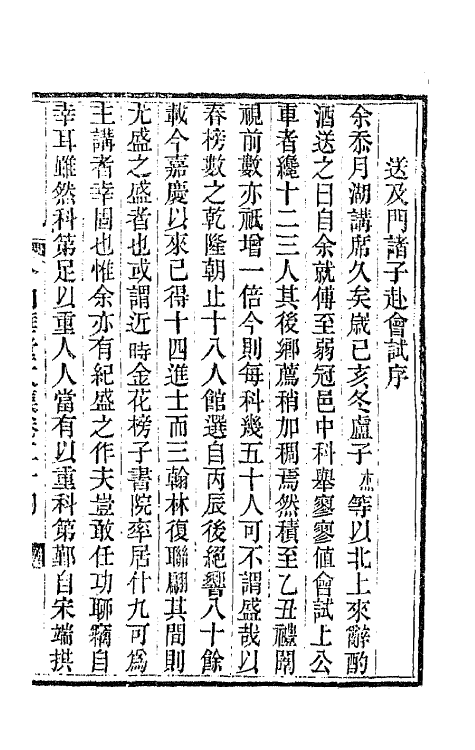 送及門諸子赴會試序
余忝月湖講席久矣歲己亥冬盧子杰等以北上來辭酌
酒送之曰自余就傅至弱冠邑中科舉寥寥值會試上公
車者纔十二三人其後鄉薦稍加稠焉然積至乙丑禮闈
視前數亦祇增一倍今則每科幾五十人可不謂盛哉以
春榜數之乾隆朝止十八人館選自丙辰後絕響八十餘
載今嘉慶以來已得十四進士而三翰林復聯翩其間則
尤盛之盛者也或謂近時金花榜子書院率居什九可爲
主講者幸固也惟余亦有紀盛之作夫豈敢任功聊竊自
幸耳雖然科第足以重人人當有以重科第鄞自宋端拱